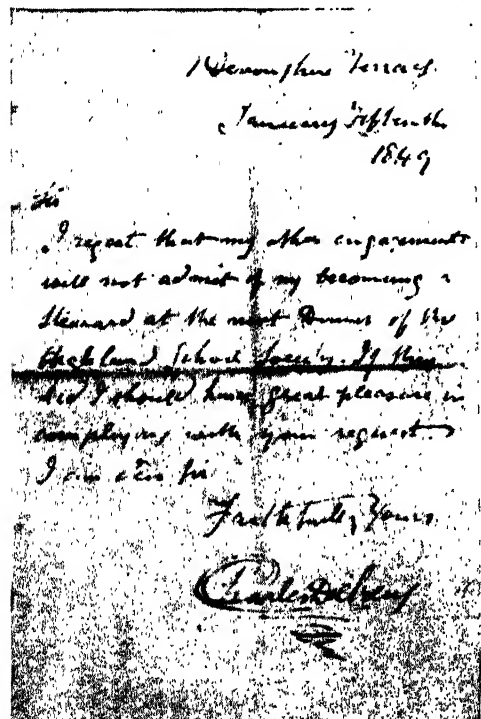 1 Devonshire Terrace.
January Fifteenth
1849
Sir
I regret that my other engagements
will not admit of my becoming a
Steward at the next Dinner of the
Highland School Society. If they
did I should have great pleasure in
complying with your request.
I am Sir
Faithfully Yours
Charles Dickens